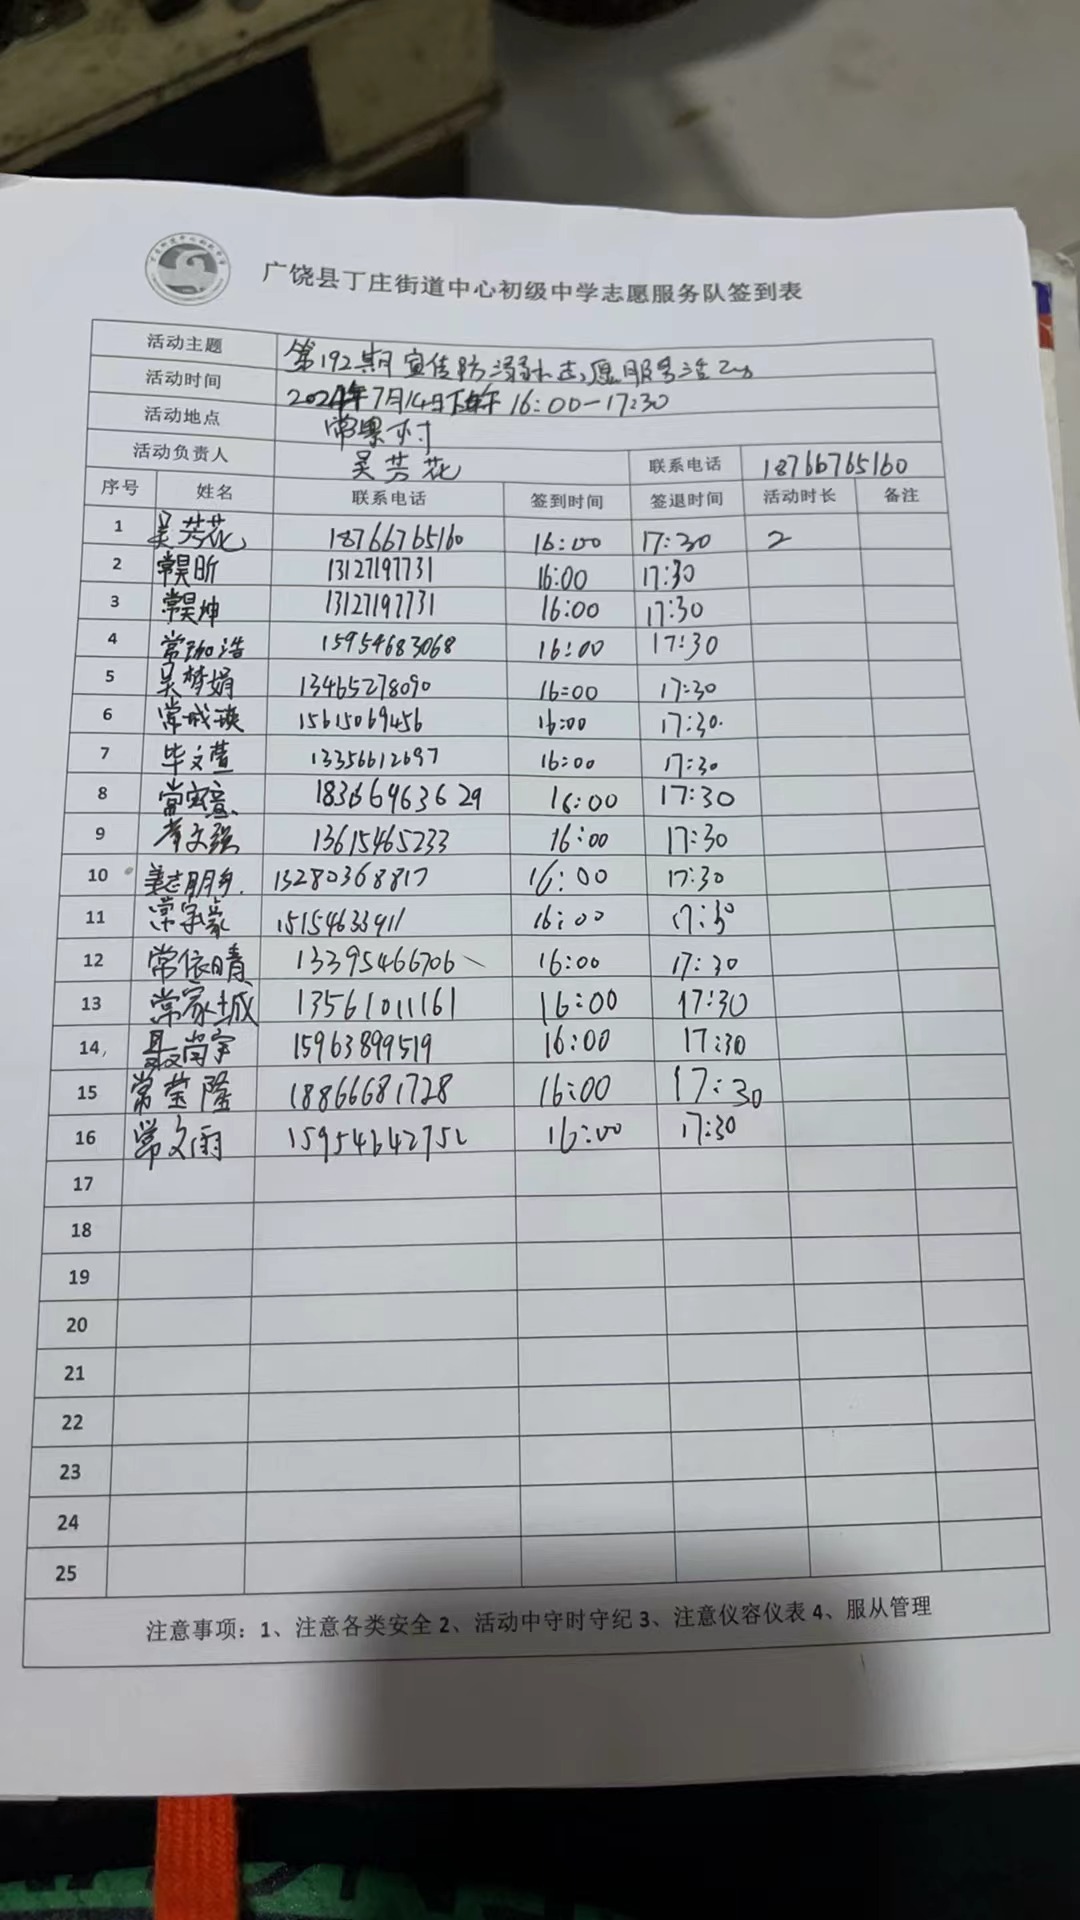 广饶县丁庄街道中心初级中学志愿服务队签到表
活动主题 第192期宣传防溺水志愿服务活动
活动时间 2024年7月14日下午16:00-17:30
活动地点 常果村
活动负责人 吴芳花 联系电话 18766765160
序号 姓名 联系电话 签到时间 签退时间 活动时长 备注
1 吴芳花 18766765160 16:00 17:30 2
2 常昊昕 13127197731 16:00 17:30
3 常昊坤 13127197731 16:00 17:30
4 常珈浩 15954683068 16:00 17:30
5 吴梦娟 13465278090 16:00 17:30
6 常城瑛 15615069456 16:00 17:30.
7 毕文萱 13356612697 16:00 17:30
8 16:00 17:30
9 李文强 13615465233 16:00 17:30
10 13280368817 16:00 17:30
11 常家豪 15154633911 16:00 17:30
12 常依晴 13395466706 16:00 17:30
13 常家城 13561011161 16:00 17:30
14 聂尚宇 15963899519 16:00 17:30
15 常莹隆 18866681728 16:00 17:30
16 常文雨 16:00 17:30
17
18
19
20
21
22
23
24
25
注意事项：1、注意各类安全 2、活动中守时守纪 3、注意仪容仪表 4、服从管理